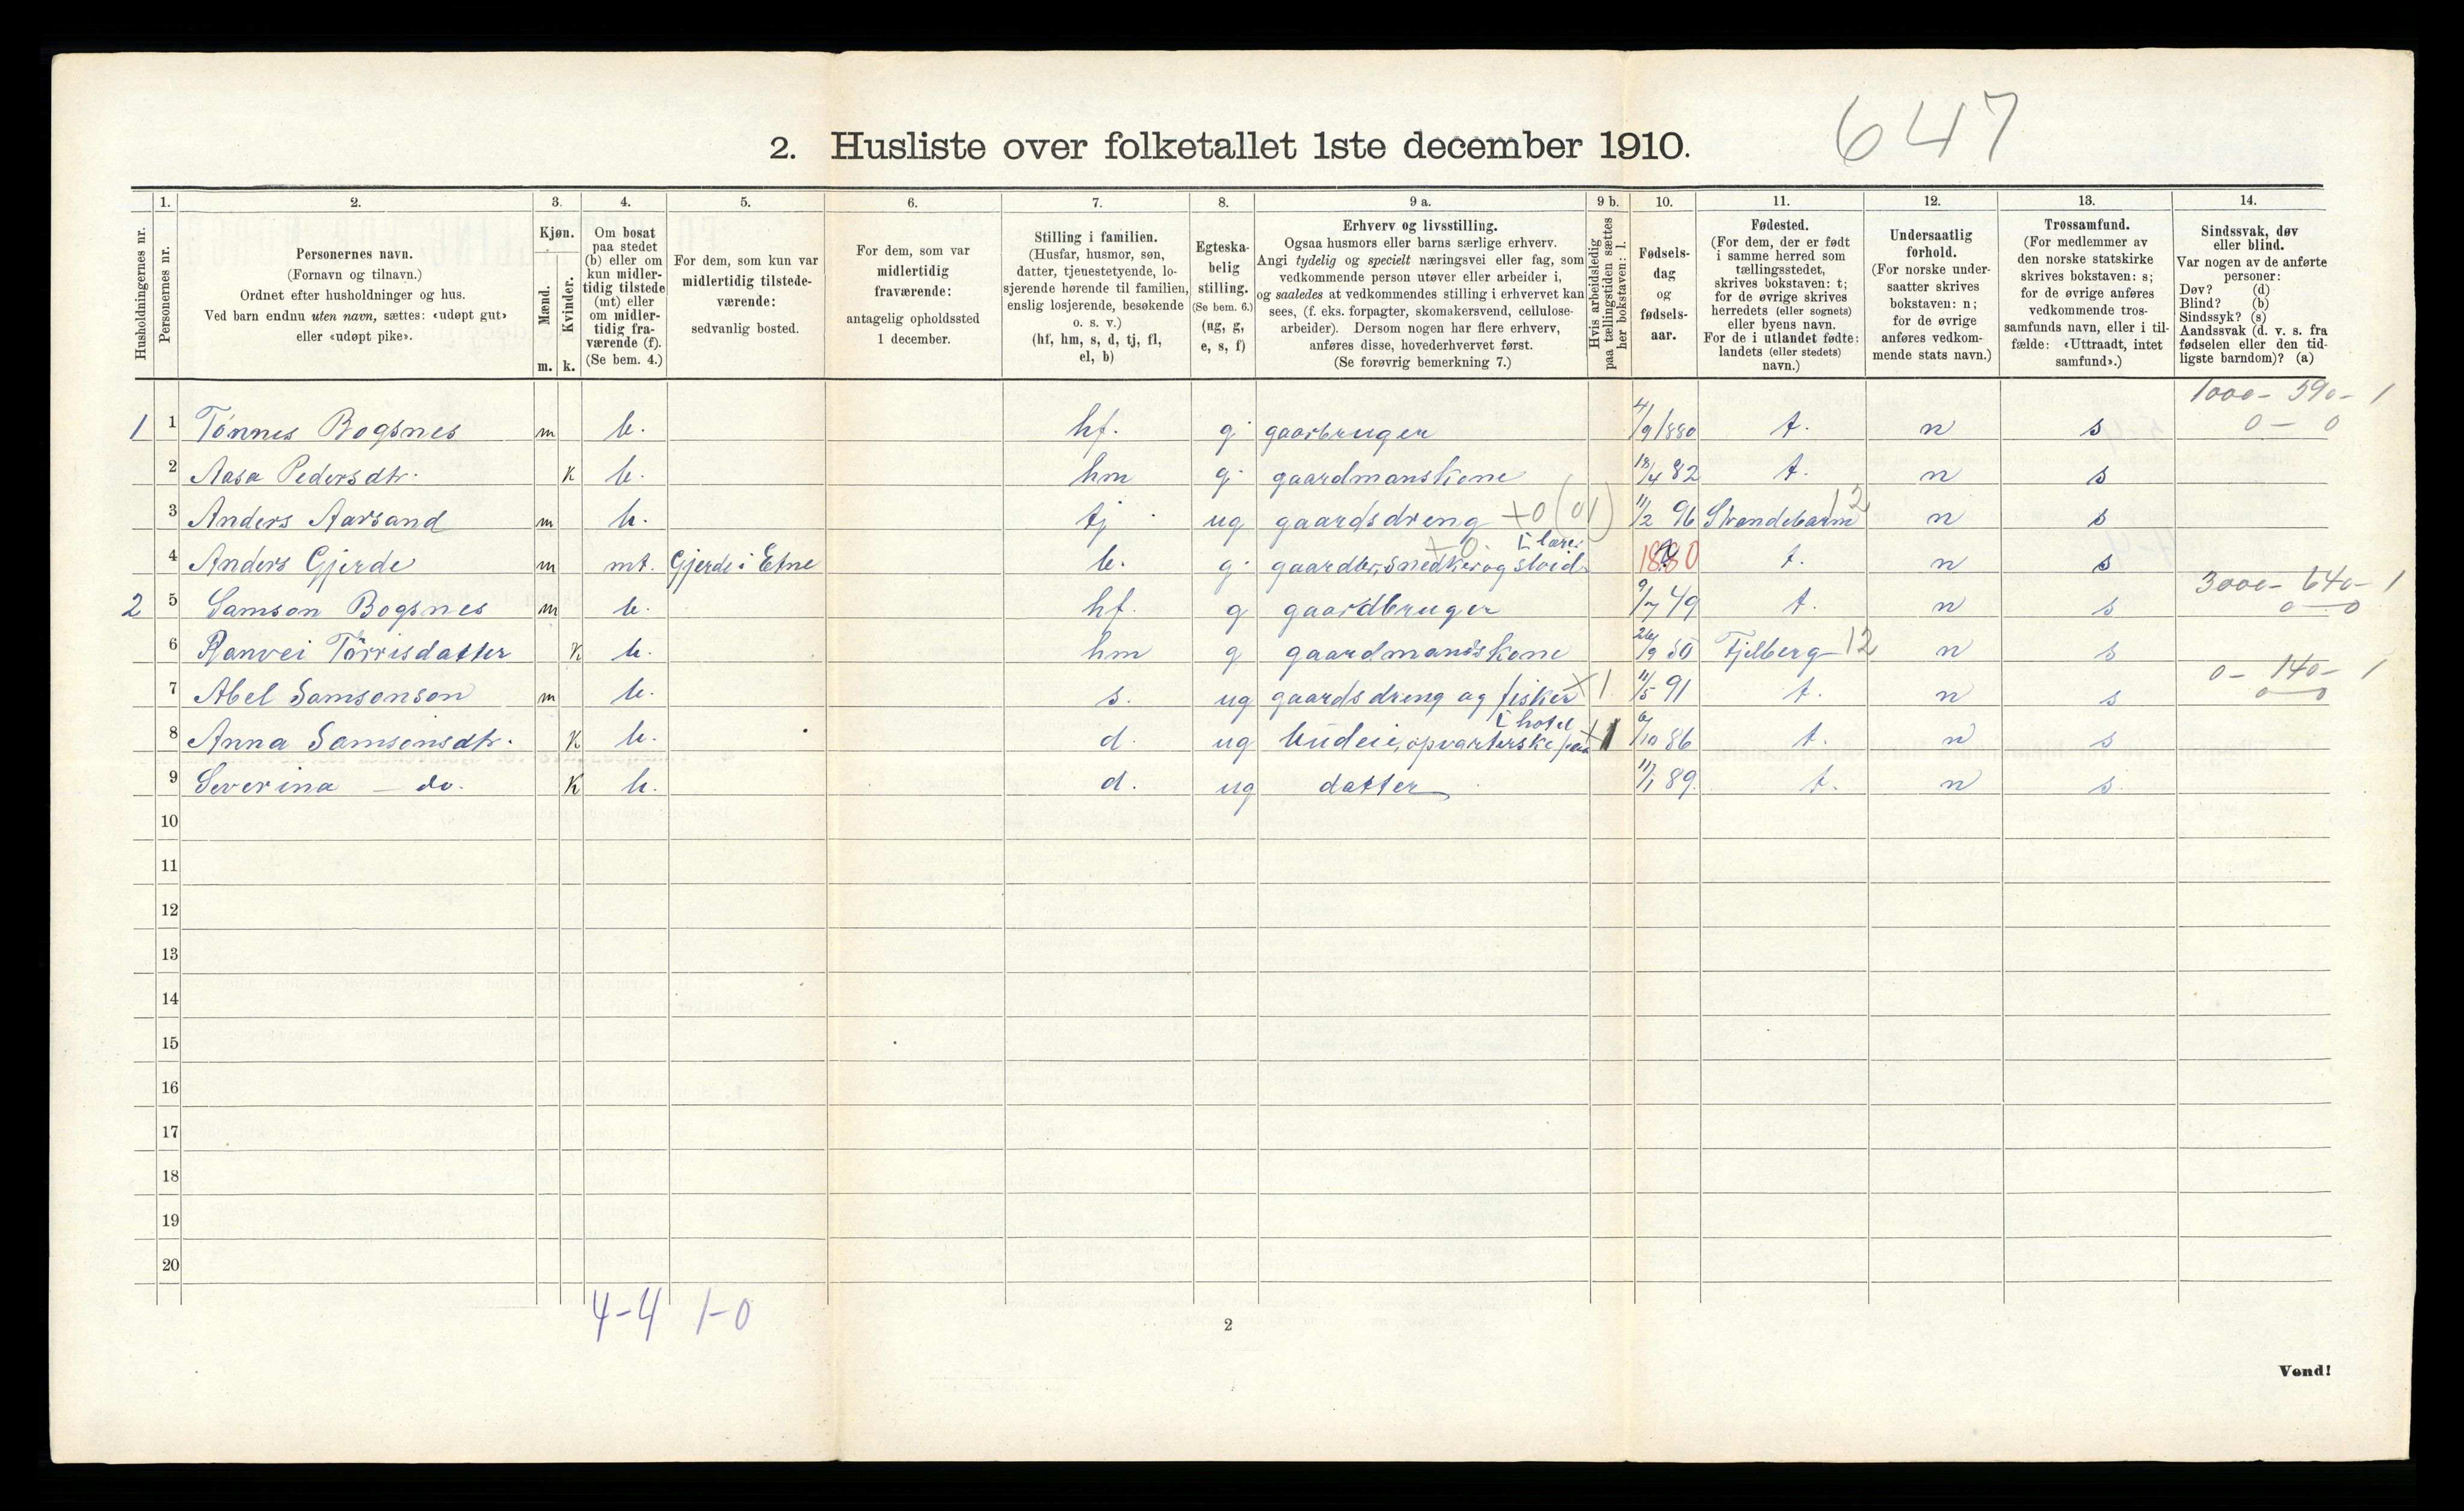 647
2. Husliste over folketallet 1ste december 1910.
Husholdningernes nr.
1.
Personernes nr.
2.
Personernes navn.
(Fornavn og tilnavn.)
Ordnet efter husholdninger og hus.
Ved barn endnu uten navn, sættes: «udøpt gut»
eller «udøpt pike».
3.
Kjøn.
Mænd.
Kvinder.
m. k.
4.
Om bosat
paa stedet
(b) eller om
kun midler-
tidig tilstede
(mt) eller
om midler-
tidig fra-
værende (f).
(Se bem. 4.)
5.
For dem, som kun var
midlertidig tilstede-
værende:
sedvanlig bosted.
6.
For dem, som var
midlertidig
fraværende:
antagelig opholdssted
1 december.
7.
Stilling i familien.
(Husfar, husmor, søn,
datter, tjenestetyende, lo-
sjerende hørende til familien,
enslig losjerende, besøkende
o. s. v.)
(hf, hm, s, d, tj, fl,
el, b)
8.
Egteska-
belig
stilling.
(Se bem. 6.)
(ug, g,
e, s, f)
9 a.
Erhverv og livsstilling.
Ogsaa husmors eller barns særlige erhverv.
Angi tydelig og specielt næringsvei eller fag, som
vedkommende person utøver eller arbeider i,
og saaledes at vedkommendes stilling i erhvervet kan
sees, (f. eks. forpagter, skomakersvend, cellulose-
arbeider). Dersom nogen har flere erhverv,
anføres disse, hovederhvervet først.
(Se forøvrig bemerkning 7.)
9 b.
Hvis arbeidsledig
paa tællingstiden sættes
her bokstaven: l.
10.
Fødsels-
dag
og
fødsels-
aar.
11.
Fødested.
(For dem, der er født
i samme herred som
tællingsstedet,
skrives bokstaven: t;
for de øvrige skrives
herredets (eller sognets)
eller byens navn.
For de i utlandet fødte:
landets (eller stedets)
navn.)
12.
Undersaatlig
forhold.
(For norske under-
saatter skrives
bokstaven: n;
for de øvrige
anføres vedkom-
mende stats navn.)
13.
Trossamfund.
(For medlemmer av
den norske statskirke
skrives bokstaven: s;
for de øvrige anføres
vedkommende tros-
samfunds navn, eller i til-
fælde: «Uttraadt, intet
samfund».)
14.
Sindssvak, døv
eller blind.
Var nogen av de anførte
personer:
Døv? (d)
Blind? (b)
Sindssyk? (s)
Aandssvak (d. v. s. fra
fødselen eller den tid-
ligste barndom)? (a)
1000 - 590 - 1
1 1 Tönnes Bogsnes m b. hf. g gaarbruger 4/9 1880 t. n s 0 - 0
2 Aasa Pedersdtr. k b. hm g gaardmanskone 18/4 82 t. n s
3 Anders Aarsand m b. tj ug gaardsdreng +0 (01) 11/2 96 Strandebarm 12 n s
4 Anders Gjerde m mt. Gjerde i Etne b. g gaardbr, snedker og sloid- +0 lærer 1880 t. n s
3000 - 640 - 1
2 5 Samson Bogsnes m b. hf. g gaardbruger 9/7 49 t. n s 0 - 0
6 Ranvei Törrisdatter k b. hm g gaardmandskone 26/9 50 Fjelberg 12 n s
0 - 140 - 1
7 Abel Samsonson m b. s. ug gaardsdreng og fisker +1 11/5 91 t. n s 0 - 0
8 Anna Samsonsdtr. k b. d. ug budeie, opvarterske paa hotel +1 6/10 86 t. n s
9 Severina - do. k b. d. ug datter 11/1 89. t. n s
10
11
12
13
14
15
16
17
18
19
20
4-4 1-0
2
Vend!